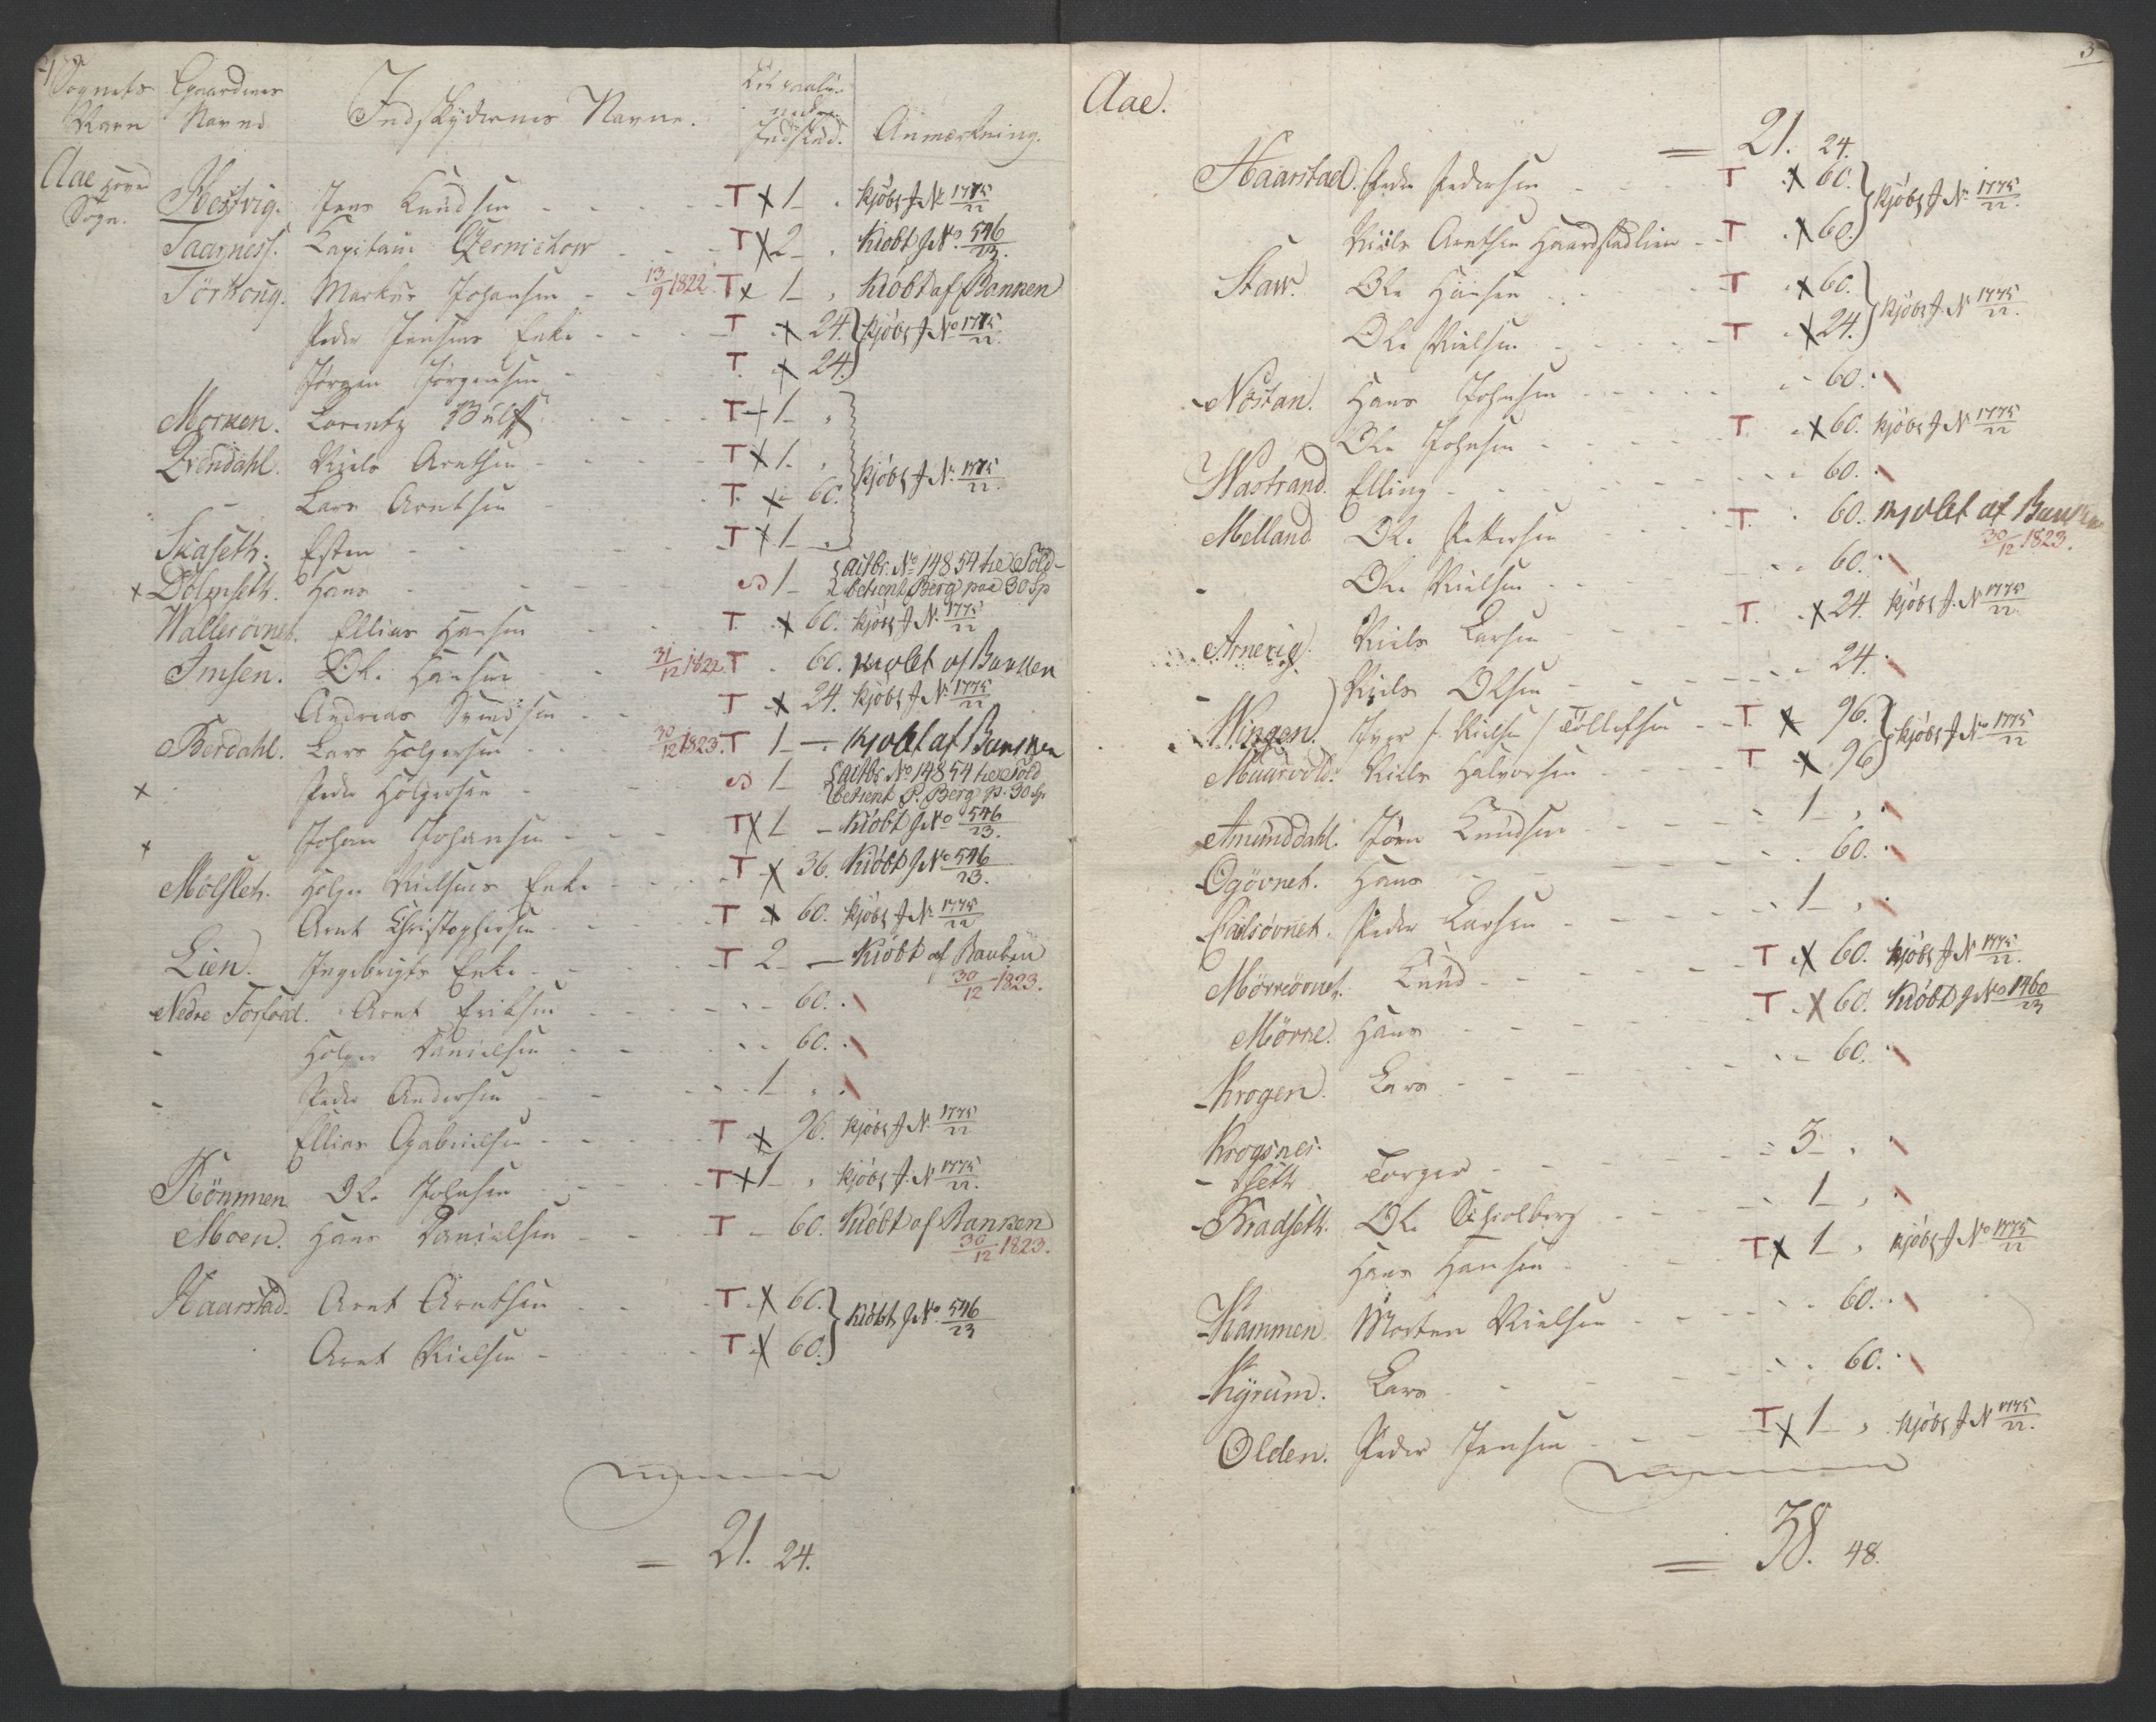 Sognets Gaardenes Indskydernes Navne. Anmærkning.
Navn Navne Indskud.
Aae Hoved Sogn.
Hestvig. Jens Knudsen T x 1 „ kjöbt J. N. 1775/22
Taarness. Kapitain Czernichow T x 2 „ Kiöbt J No. 546/23.
Törkoug. Markus Johansen 13/9 1822. T x 1 „ Kiöbt af Banken
Peder Jensens Enke T x 24. kjöbt J. No 1775/22.
Jörgen Jörgensen T. x 24.
Morken. Lorentz Bull T x 1 „
Evendahl. Niels Arntsen T x 1. „ kjöbt J. N. 1775/22.
Lars Arntsen T. x 60.
Skaseth. Esten T x 1
x Dölgseth. Hans 1 actbr. No 14854 til Told-
betient Berg paa 30 Sp
Wallesövnet. Ellias Hansen T. x 60. kjöbt J N. 1775/22
Imsen. Ole Hansen 31/12 1822. T. 60. kjøbt af Banken
Andreas Svendsen T x 24. kjöbt J. N. 1775/22
Berdahl. Lars Holgersen 30/12 1823. T 1 — kjøbt af Banken
x Peder Holgersen 1 actbr. No 14854 til Told
betient P. Berg p. 30 Sp
x Johan Johansen T x 1 – Kiöbt J No 546/23.
Mölslet. Holger Nielsens Enke T x 36. Kiöbt J No 546/23.
Arnt Christophersen T x 60. kjöbt J. N. 1775/22
Lien. Ingebrigts Enke T 2 — Kiöbt af Banken
30/12 1823.
Nedre Forfod. Arnt Eriksen 60.
- Holger Danielsen 60.
- Peder Andersen 1 „
Ellias Gabrielsen T x 96. kjöbt J N 1775/22
Rönnmen. Ole Johnsen T x 1 „ kjöbt J. N. 1775/22.
Moen. Hans Danielsen T 60. Kiöbt af Banken
30/12 1823.
Haarstad. Arnt Arntsen T x 60. Kiöbt J No. 546/23
Arnt Nielsen T x 60.
= 21. 24.
Aae. 3
= 21. 24.
Haarstad. Peder Pedersen T x 60. kjöbt J N. 1775/22.
Niels Arntsen Haarstadlien T x 60.
Staw. Ole Hansen T x 60. kjöbt J. N 1775/22.
Ole Nielsen T x 24.
Nöstan. Hans Johnsen 60.
Ole Johnsen T. x 60. kjöbt J N 1775/22
Wastrand. Elling 60.
Melland Ole Pettersen T. 60. kjøbt af Banken
30/12 1823.
- Ole Nielsen 60.
Arnevig. Niels Larsen T. x 24. kjöbt J. N 1775/22.
- Niels Olsen 24.
Wingen. Iver /: Nielsen / Tollefsen T. x 96. kjöbt J. No 1775/22
Muurvold. Niels Halvorsen T x 96
Amunddahl. Jörn Knudsen 1 „
Ogövnet. Hans 60.
Eidsövnet. Peder Larsen 1 „
Mörreövnet. Knud T x 60. kjöbt J N 1775/22.
Mörre. Hans T x 60. Kiöbt J No 1460/23
Krogen. Lars 60.
Krogsnes-
seth Torger 3 „
Bradseth. Ole Schiolberg 1 „
Hans Hansen T x 1 „ kjöbt J No 1775/22
Hammen. Morten Nielsen 60.
Hyrum. Lars 60.
Olden. Peder Jensen T x 1 „ kjöbt J N 1775/22.
= 38. 48.